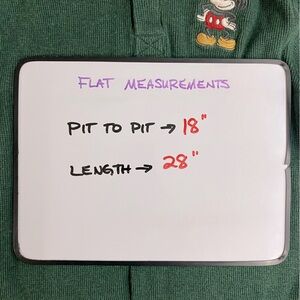 FLAT MEASUREMENTS
PIT TO PIT → 18"
LENGTH → 28"